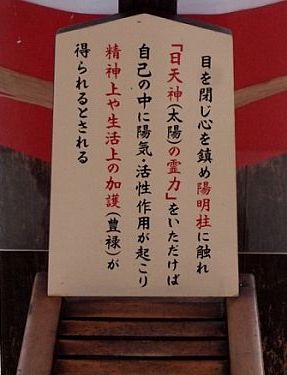 目を閉じ心を鎮め陽明柱に触れ
「日天神(太陽)の霊力」をいただけば
自己の中に陽気・活性作用が起こり
精神上や生活上の加護(豊禄)が
得られるとされる